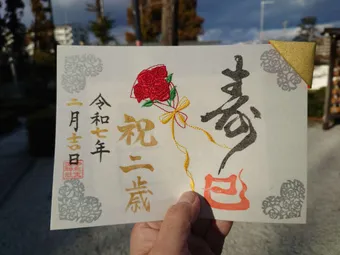 寿
巳
祝二歳
令和七年
二月吉日